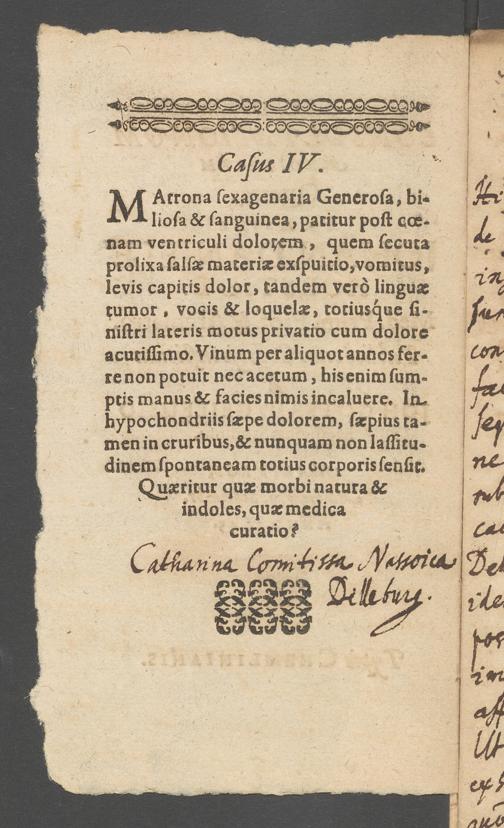 Casus IV.
MAtrona sexagenaria Generosa, bi-
liosa & sanguinea, patitur post cœ-
nam ventriculi dolorem, quem secuta
prolixa salsæ materiæ exspuitio, vomitus,
levis capitis dolor, tandem verò linguæ
tumor, vocis & loquelæ, totiusq́ue si-
nistri lateris motus privatio cum dolore
acutissimo. Vinum per aliquot annos fer-
re non potuit nec acetum, his enim sum-
ptis manus & facies nimis incaluere. In
hypochondriis sæpe dolorem, sæpius ta-
men in cruribus, & nunquam non lassitu-
dinem spontaneam totius corporis sensit.
Quæritur quæ morbi natura &
indoles, quæ medica
curatio?
Catharina Comitissa Nassoica
Delleburg.
de
con
ne